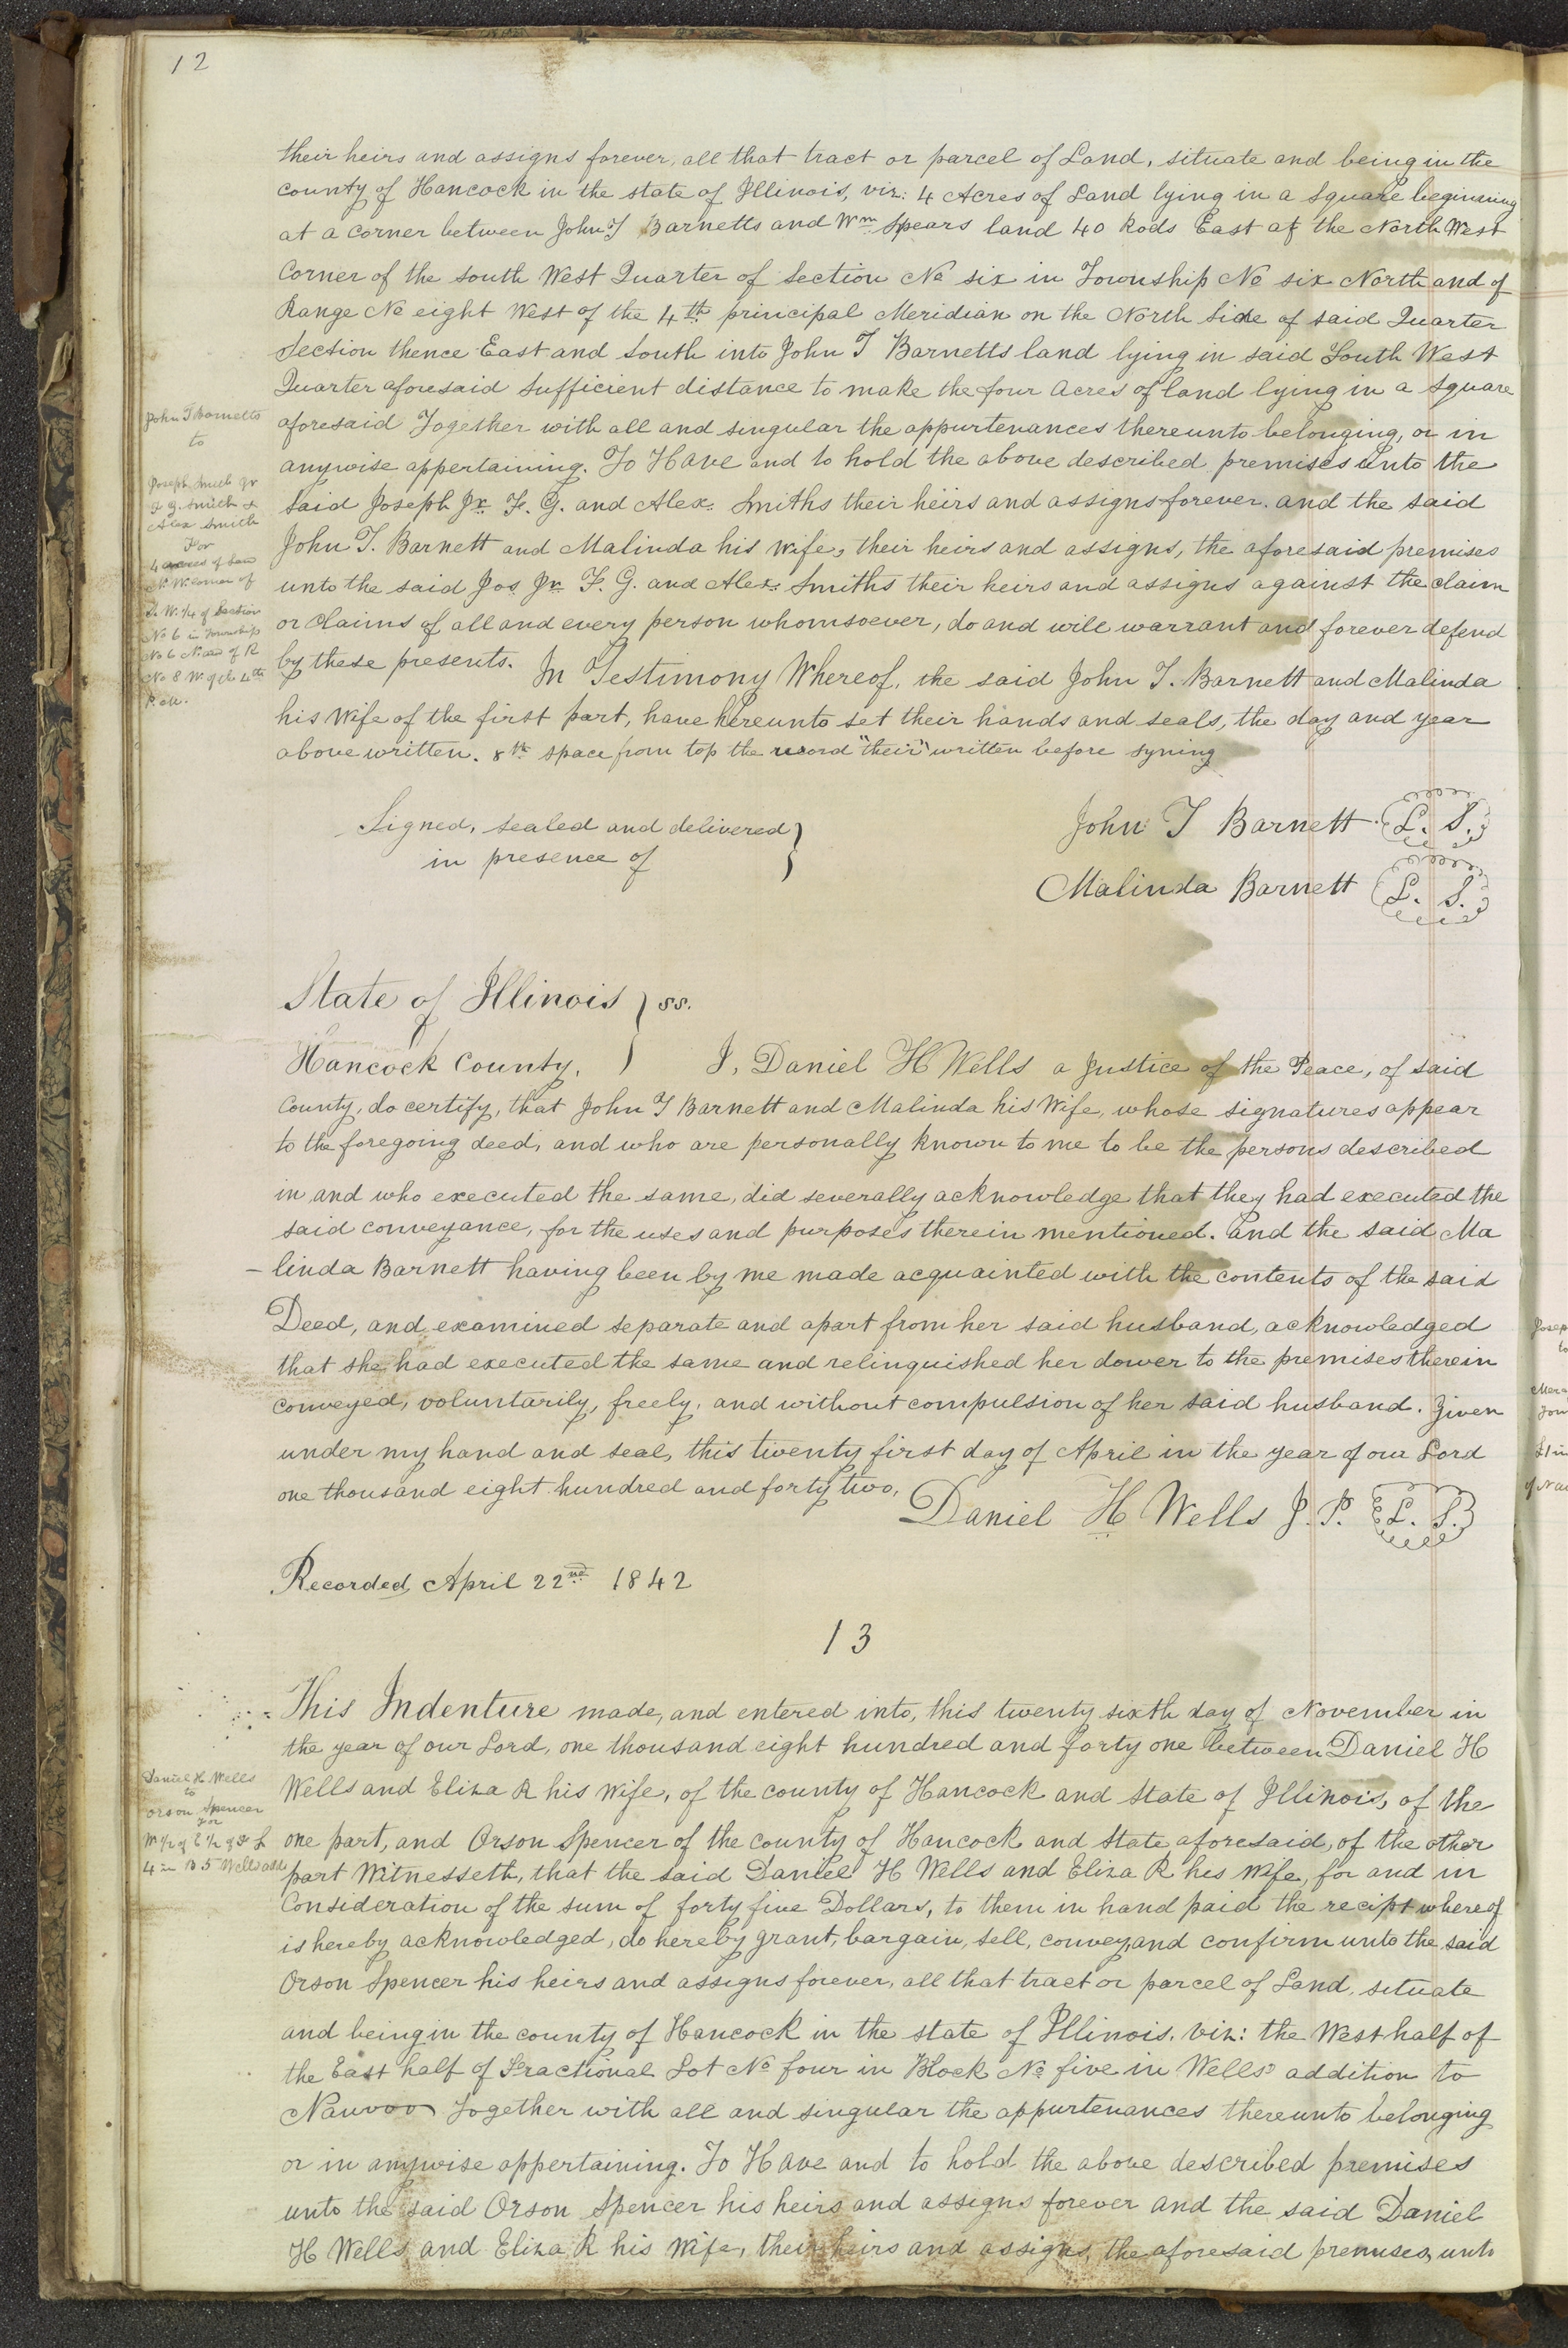 12
their heirs and assigns forever, all that tract or parcel of Land, situate and being in the
county of Hancock in the state of Illinois, viz: 4 Acres of Land lying in a Square beginning
at a corner between John T Barnetts and Wm Spears land 40 Rods East of the North West
Corner of the South West Quarter of Section No six in Township No six North and of
Range No eight West of the 4th principal Meridian on the North Side of said Quarter
Section thence East and South into John T Barnetts land lying in said South West
Quarter aforesaid Sufficient distance to make the four Acres of land lying in a Square
aforesaid Together with all and singular the appurtenances thereunto belonging, or in
anywise appertaining. To Have and to hold the above described premises unto the
Said Joseph Jr. F. G. and Alex. Smiths their heirs and assigns forever. and the said
John T. Barnett and Malinda his wife, their heirs and assigns, the aforesaid premises
unto the said Jos Jr. F. G. and Alex. Smiths their heirs and assigns against the claim
or claims of all and every person whomsoever, do and will warrant and forever defend
by these presents. In Testimony Whereof, the said John T. Barnett and Malinda
his Wife of the first part, have hereunto set their hands and seals, the day and year
above written. 8th space from top the word "their" written before syning
John T Barnetts
to
Joseph Smith Jr
F G. Smith &
Alex Smith
For
4 acres of Land
N. W. corner of
S. W. 1/4 of Section
No 6 in Township
No 6 N. and of R
No 8 W. of the 4th
P. M.
Signed, sealed and delivered
in presence of
John T Barnett L. S.
Malinda Barnett L. S.
State of Illinois } ss.
Hancock County. } I, Daniel H Wells a Justice of the Peace, of said
County, do certify, that John T Barnett and Malinda his Wife, whose signatures appear
to the foregoing deed, and who are personally known to me to be the persons described
in and who executed the same, did severally acknowledge that they had executed the
said conveyance, for the uses and purposes therein mentioned. and the said Ma
-linda Barnett having been by me made acquainted with the contents of the said
Deed, and examined separate and apart from her said husband, acknowledged
that she had executed the same and relinquished her dower to the premises therein
conveyed, voluntarily, freely, and without compulsion of her said husband. Given
under my hand and seal, this twenty first day of April in the year of our Lord
one thousand eight hundred and forty two,
Daniel H Wells J. P. L. S.
Recorded, April 22nd 1842
13
This Indenture made, and entered into, this twenty sixth day of November in
the year of our Lord, one thousand eight hundred and forty one between Daniel H
Wells and Eliza R his wife, of the county of Hancock and State of Illinois, of the
one part, and Orson Spencer of the county of Hancock and State aforesaid, of the other
part Witnesseth, that the said Daniel H Wells and Eliza R his wife, for and in
Consideration of the sum of forty five Dollars, to them in hand paid the recipt whereof
is hereby acknowledged, do hereby grant, bargain, sell, convey, and confirm unto the said
Orson Spencer his heirs and assigns forever, all that tract or parcel of Land, situate
and being in the county of Hancock in the state of Illinois, viz: the West half of
the East half of Fractional Lot No four in Block No five in Wells' addition to
Nauvoo Together with all and singular the appurtenances thereunto belonging
or in anywise appertaining. To Have and to hold the above described premises
unto the said Orson Spencer his heirs and assigns forever and the said Daniel
H Wells and Eliza R his Wife, their heirs and assigns, the aforesaid premises, unto
Daniel H. Wells
to
Orson Spencer
For
W 1/2 of E 1/2 of F L
4 in B 5 Wells add